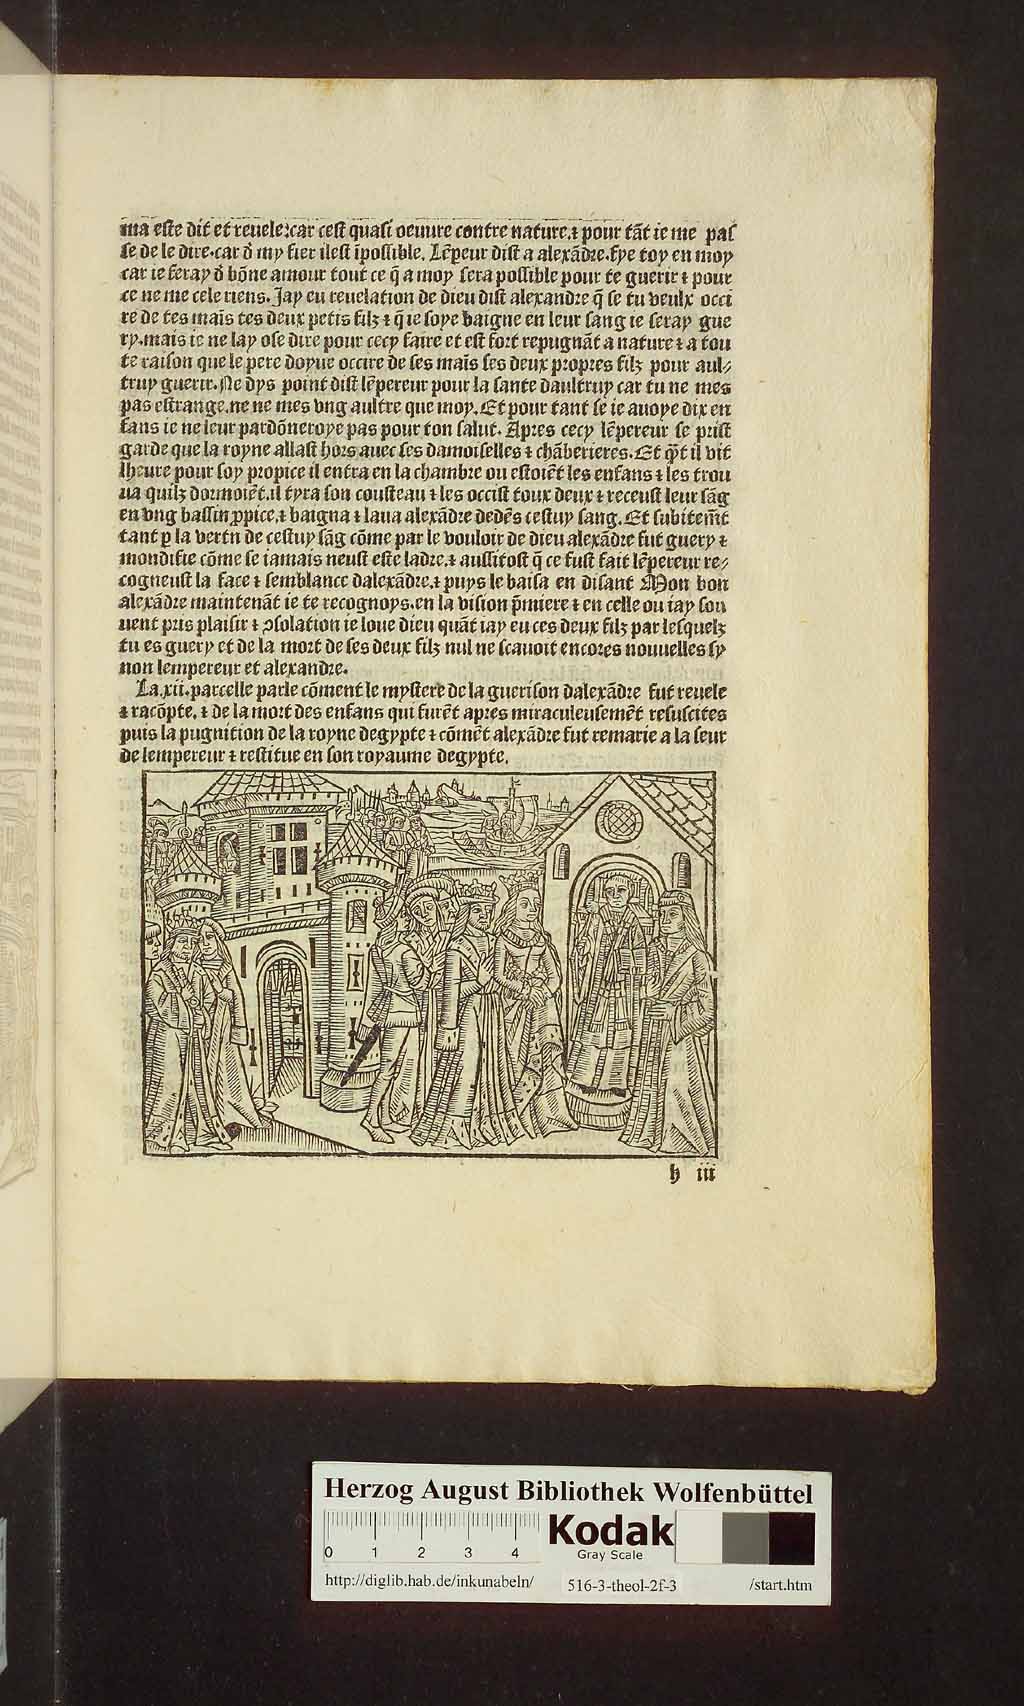 ma este dit et reuele:car cest quasi oeuure contre nature.⁊ pour tāt ie me pas
se de le dire.car d̄ my fier ilest īpossible. Lēpeur dist a alexādre.fye toy en moy
car ie feray d̄ bōne amour tout ce q̄ a moy sera possible pour te guerir ⁊ pour
ce ne me cele riens. Jay eu reuelation de dieu dist alexandre q̄ se tu veulx occi
re de tes maīs tes deux petis filz ⁊ q̄ ie soye baigne en leur sang ie seray gue
ry.mais ie ne lay ose dire pour cecy faire et est fort repugnāt a nature ⁊ a tou
te raison que le pere doyue occire de ses maīs ses deux propres filz pour aul⸗
truy guerir. Ne dys point dist lēpereur pour la sante daultruy car tu ne mes
pas estrange.ne ne mes vng aultre que moy. Et pour tant se ie auoye dix en
fans ie ne leur pardōneroye pas pour ton salut. Apres cecy lēpereur se prist
garde que la royne allast hors auec ses damoiselles ⁊ chāberieres. Et q̄t il vit
lheure pour soy propice il entra en la chambre ou estoiēt les enfans ⁊ les trou
ua quilz dormoiēt.il tyra son cousteau ⁊ les occist toux deux ⁊ receust leur sāg
en vng bassin ꝓpice.⁊ baigna ⁊ laua alexādre dedēs cestuy sang. Et subitem̄t
tant p la vertn de cestuy sāg cōme par le vouloir de dieu alexādre fut guery ⁊
mondifie cōme se iamais neust este ladre.⁊ aussitost q̄ ce fust fait lēpereur re⸗
cogneust la face ⁊ semblance dalexādre.⁊ puys le baisa en disant Mon bon
alexādre maintenāt ie te recognoys.en la vision p̄miere ⁊ en celle ou iay sou
uent pris plaisir ⁊ ↄsolation ie loue dieu quāt iay eu ces deux filz par lesquelz
tu es guery et de la mort de ses deux filz nul ne scauoit encores nouuelles sy
non lempereur et alexandre.
La.xii.parcelle parle cōment le mystere de la guerison dalexādre fut reuele
⁊ racōpte.⁊ de la mort des enfans qui furēt apres miraculeusemēt resuscites
puis la pugnition de la royne degypte ⁊ cōmēt alexādre fut remarie a la seur
de lempereur ⁊ restitue en son royaume degypte.
h iii
Herzog August Bibliothek Wolfenbüttel
0 1 2 3 4
Kodak
Gray Scale
http://diglib.hab.de/inkunabeln/ 516-3-theol-2f-3 /start.htm